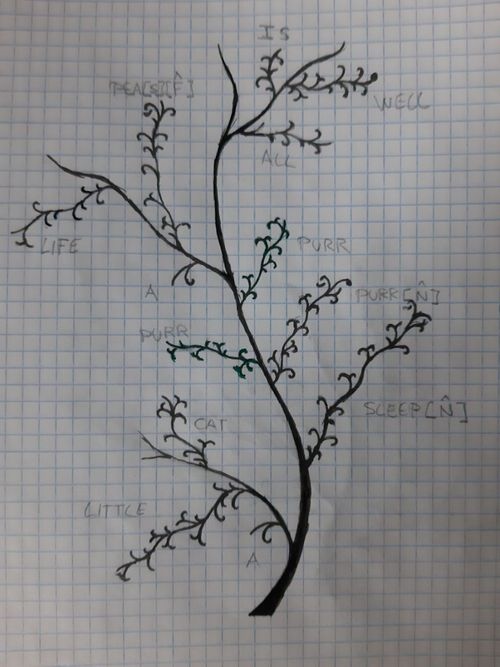 IS
PEACE[F̂]
WELL
ALL
LIFE
A
PURR
PURR[N̂]
PURR
SLEEP[N̂]
CAT
LITTLE
A